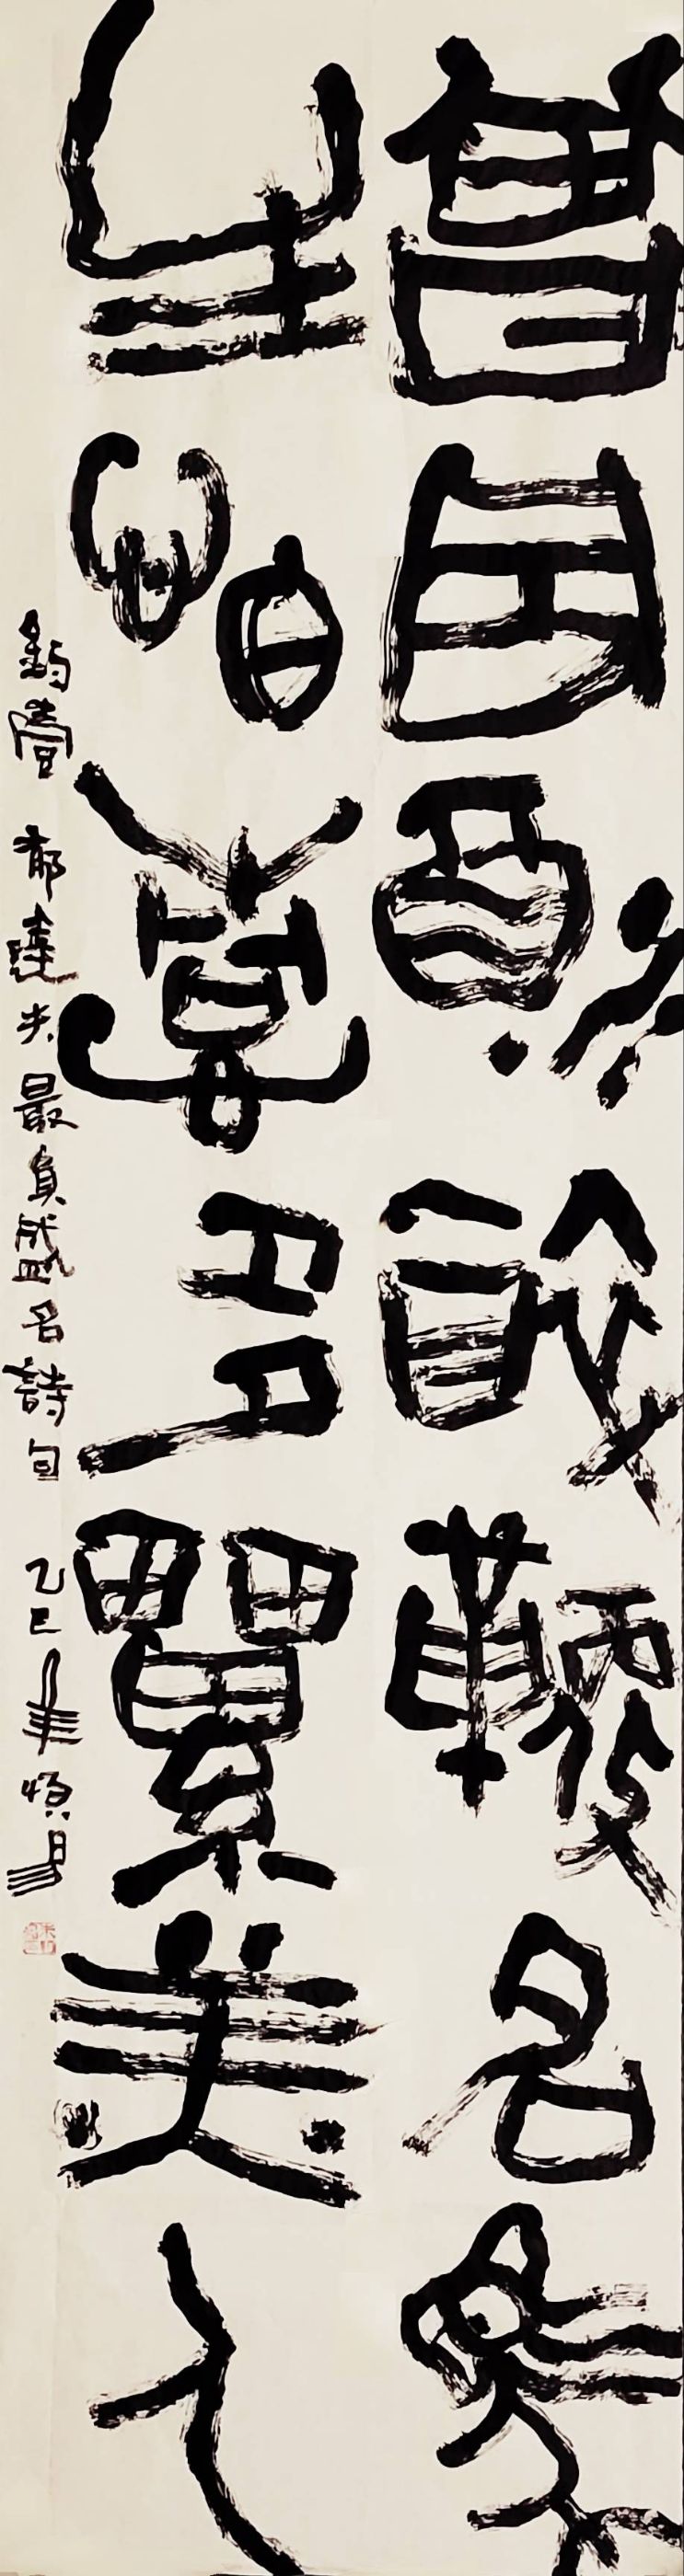 曾因酒醉鞭名馬
生怕情多纍美人
釣臺 郁達夫最負盛名詩句 乙巳年